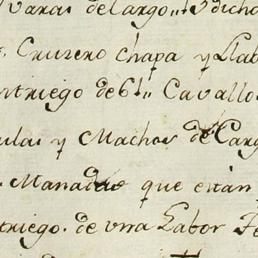 Varas de largo,, Y dicho
Cruzero chapa y Llab
ntriego de 61,, Cavallo
ulas y Machos de Carg
Manadas que estan
ntriego. de vna Labor